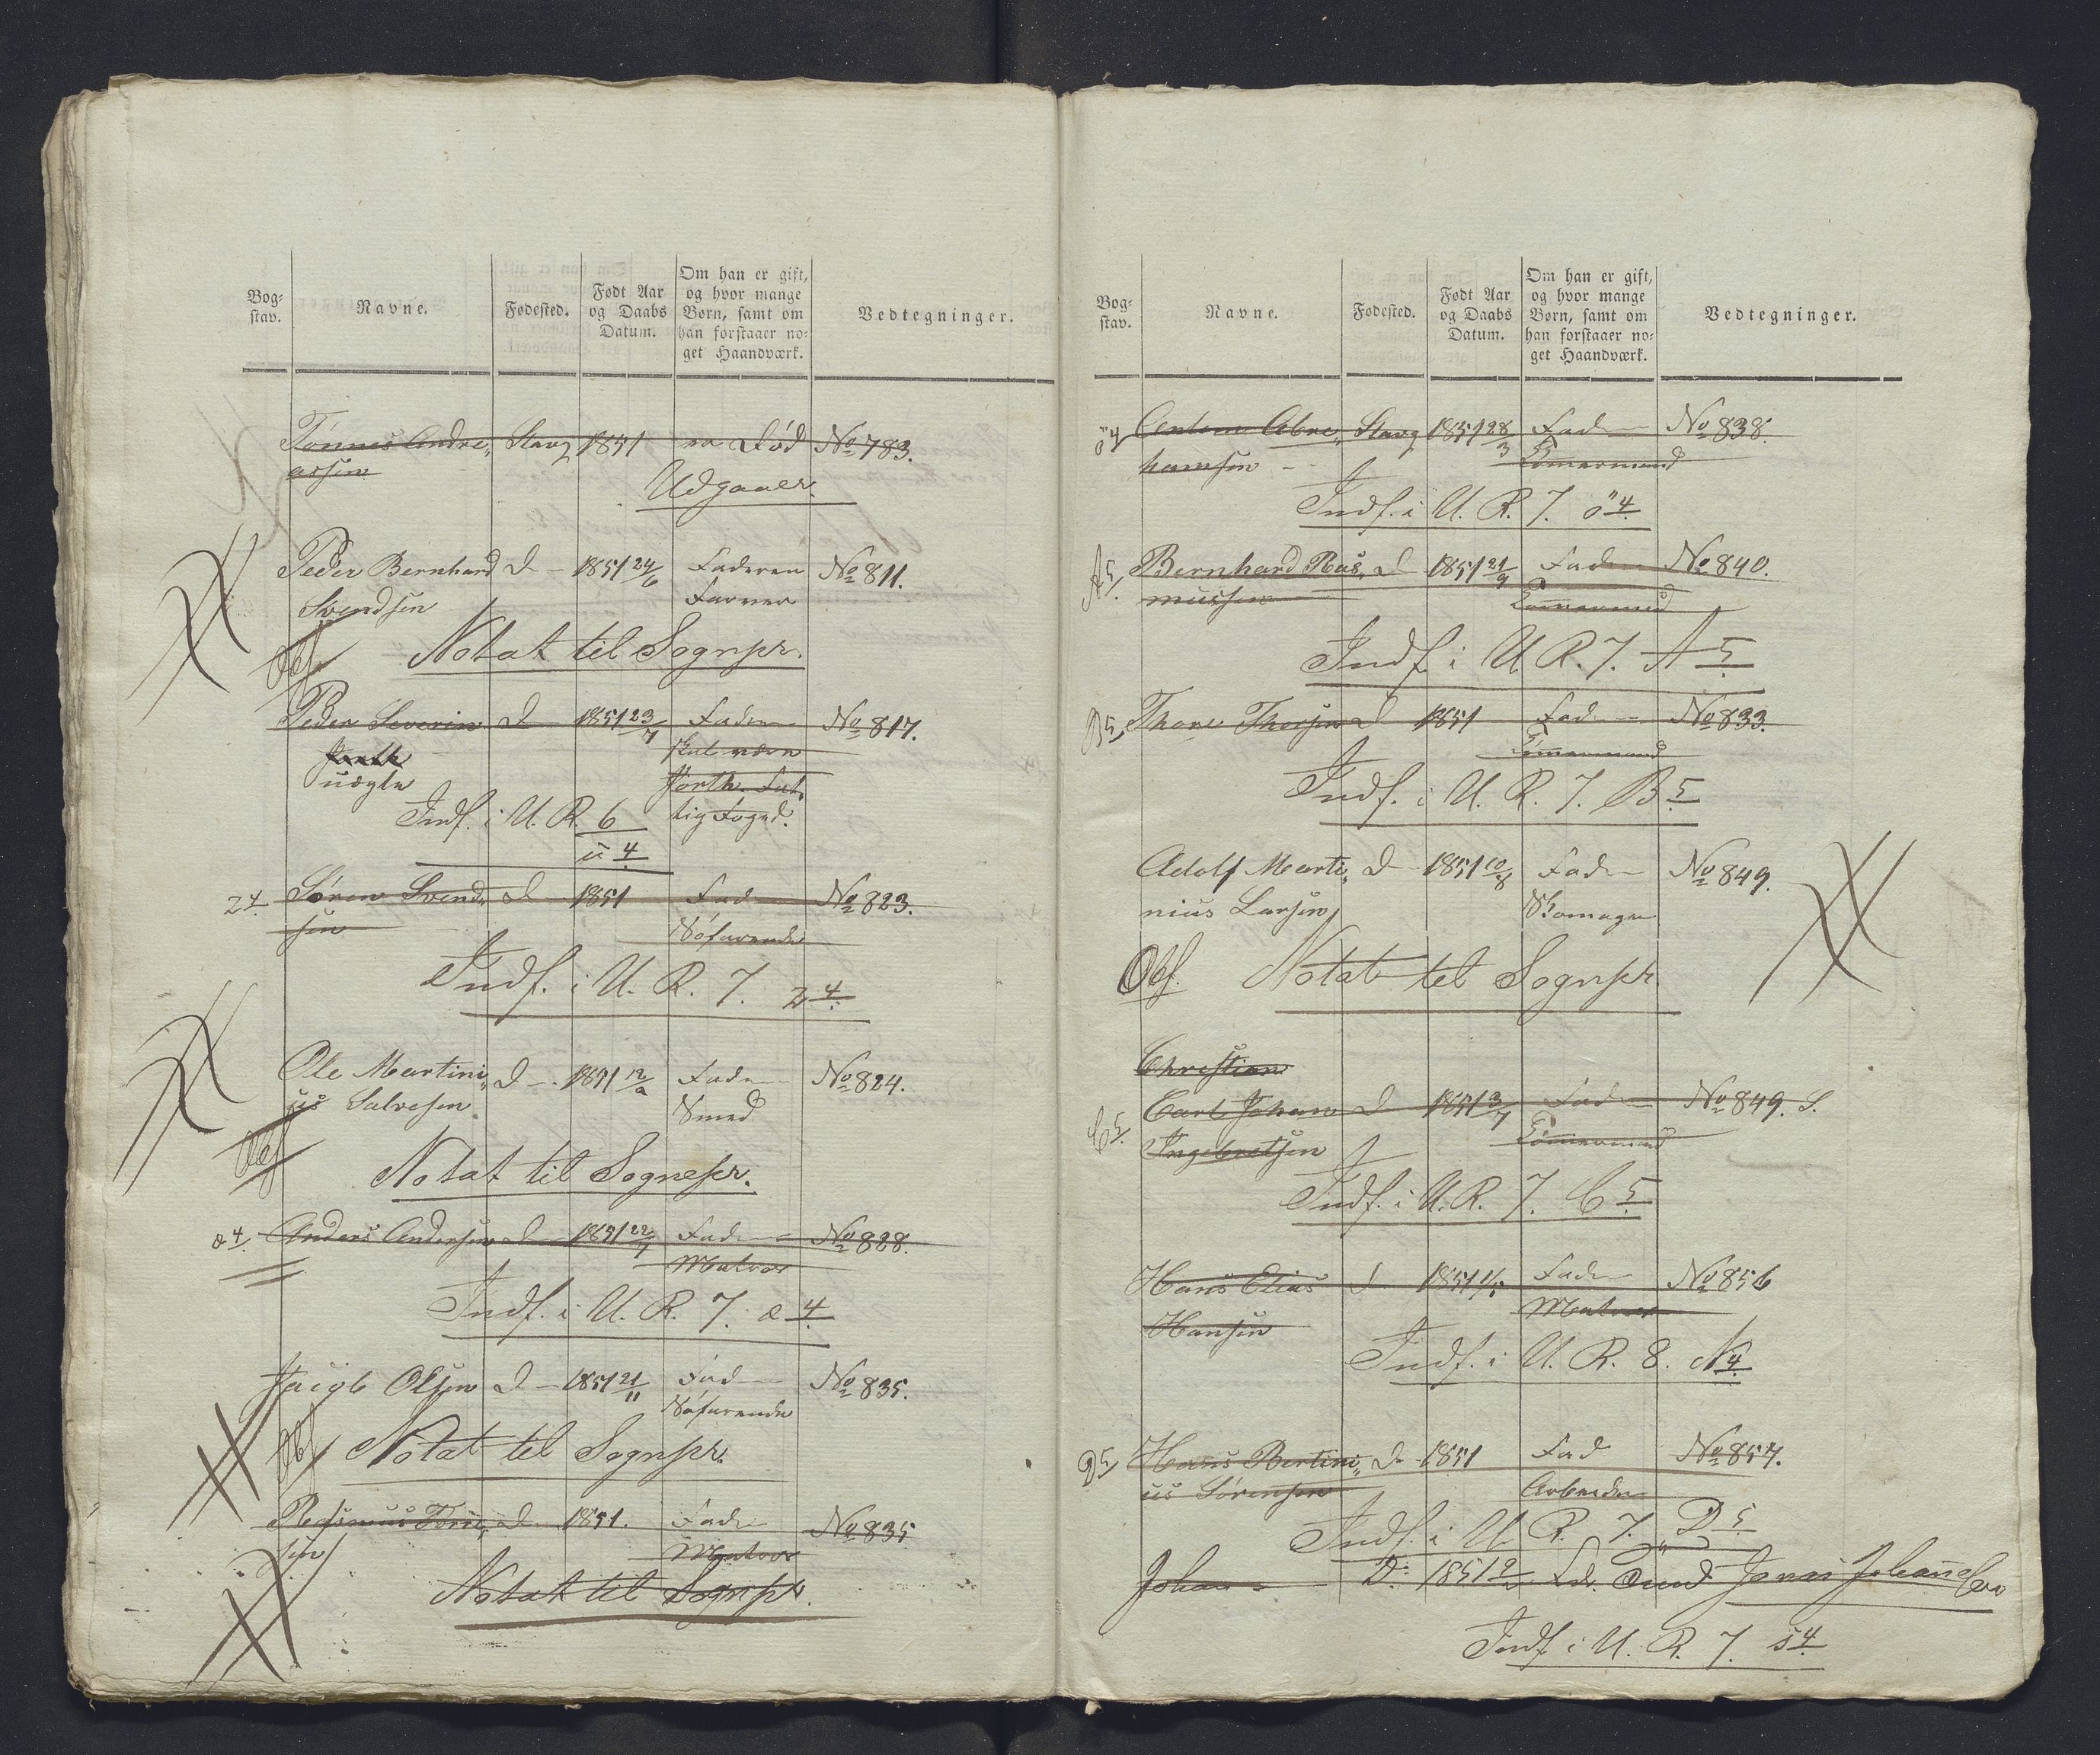 Bog-
stav.
Navne.
Fødested.
Født Aar
og Daabs
Datum.
Om han er gift,
og hvor mange
Børn, samt om
han forstaaer no-
get Haandværk.
Vedtegninger.
Tönnes Andre„ Stavg 1851 No 783.
assen
Udgaaer.
Peder Bernhard D 1851 24/6 Faderen No 811.
Svendsen Farver
Obs Notat til Sognepr.
Peder Severin D 1851 23/7 Faderen No 817.
skal være
uægte
Indf. i U. R. 6 tig Foged.
ü 4
Z 4. Sören Svend„ D 1851 Fad No 823.
sen Söfarende
Indf. i U. R. 7. Z 4.
Ole Martini„ D 1851 12/2 Fader No 824.
us Salvesen Smed
Obs
Notat til Sognepr.
æ 4. Anders Andersen D 1851 22/7 Fader No 828.
Matros
Indf. i U. R. 7. æ 4.
Jacob Olsen D 1851 21/11 Fad No 835.
Söfarende
Obs Notat til Sognepr.
Rasmus D 1851. Fader No 835
sen Matros
Notat til Sognepr.
Bog-
stav.
Navne.
Fødested.
Født Aar
og Daabs
Datum.
Om han er gift,
og hvor mange
Børn, samt om
han forstaaer no-
get Haandværk.
Vedtegninger.
ö 4 Anton Abra„ Stavg 1851 28/3 Fader No 838.
hamsen Tömmermand
Indf. i U. R. 7. ö 4.
A 5. Bernhard Ras„ D 1851 21/9 Fader No 840.
mussen Tömmermd
Indf i U. R. 7. A 5
B 5, Thore Thorsen D 1851 Fad No 833.
Tömmermand
Indf. i U. R. 7. B 5
Adolf Marti„ D 1851 10/8 Fader No 849.
nius Larsen Skomager
Obs. Notat til Sognepr.
Christian
C 5. Carl Johan D 1851 3/7 Fader No 849. S.
Ingebretsen Tömmermand
Indf. i U. R. 7. C 5.
Hans Elias D 1851 Fader No 856
Hansen Matros
Indf. i U. R. 8. N 4.
D 5, Hans Bertini„ D 1851 Fad No 857.
us Sörensen Arbeider
Indf. i U. R. 7. D 5.
Johan D. 1851 Jonas
Indf i U. R. 7. s 4.